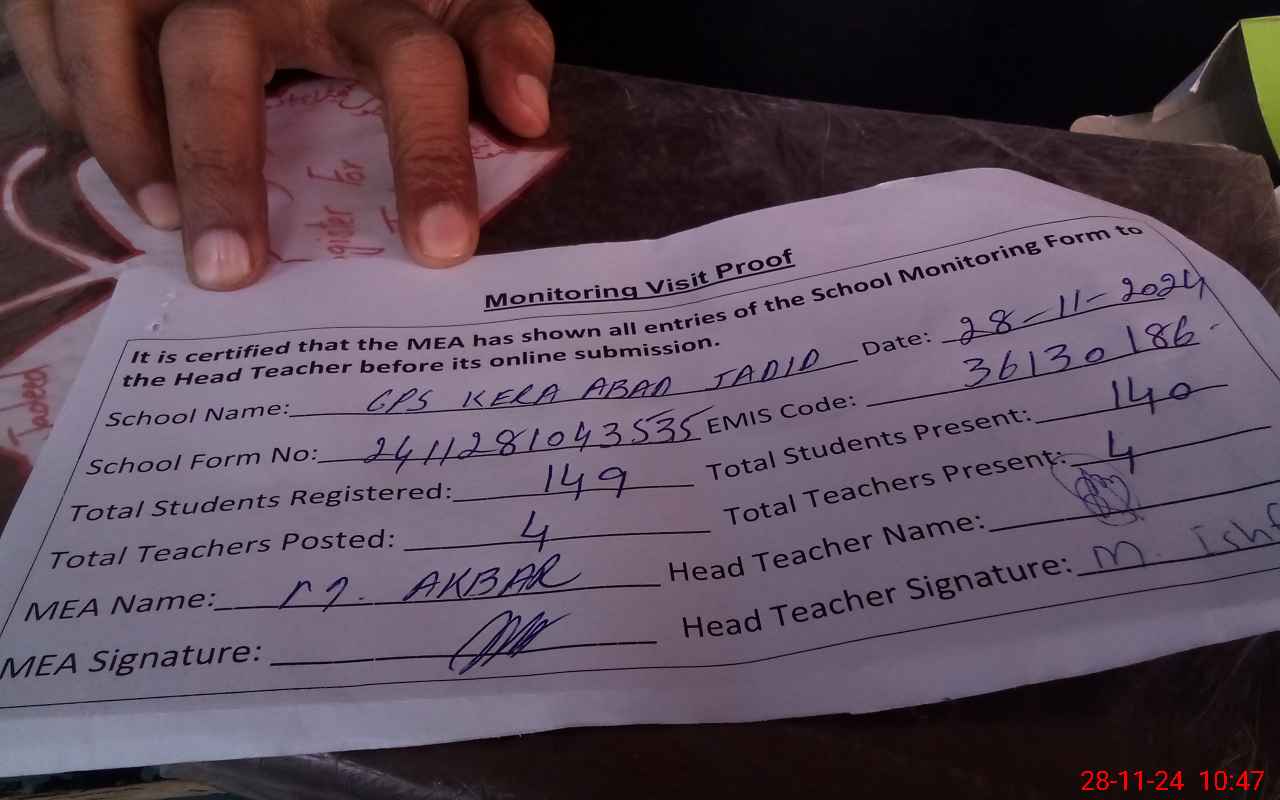 Register For
Jadeed
Monitoring Visit Proof
It is certified that the MEA has shown all entries of the School Monitoring Form to
the Head Teacher before its online submission.
School Name: GPS KERA ABAD JADID Date: 28-11-2024
School Form No: 2411281043535 EMIS Code: 36130186
Total Students Registered: 149 Total Students Present: 140
Total Teachers Posted: 4 Total Teachers Present: 4
MEA Name: M. AKBAR Head Teacher Name:
MEA Signature: Head Teacher Signature: M. Ishf
28-11-24 10:47